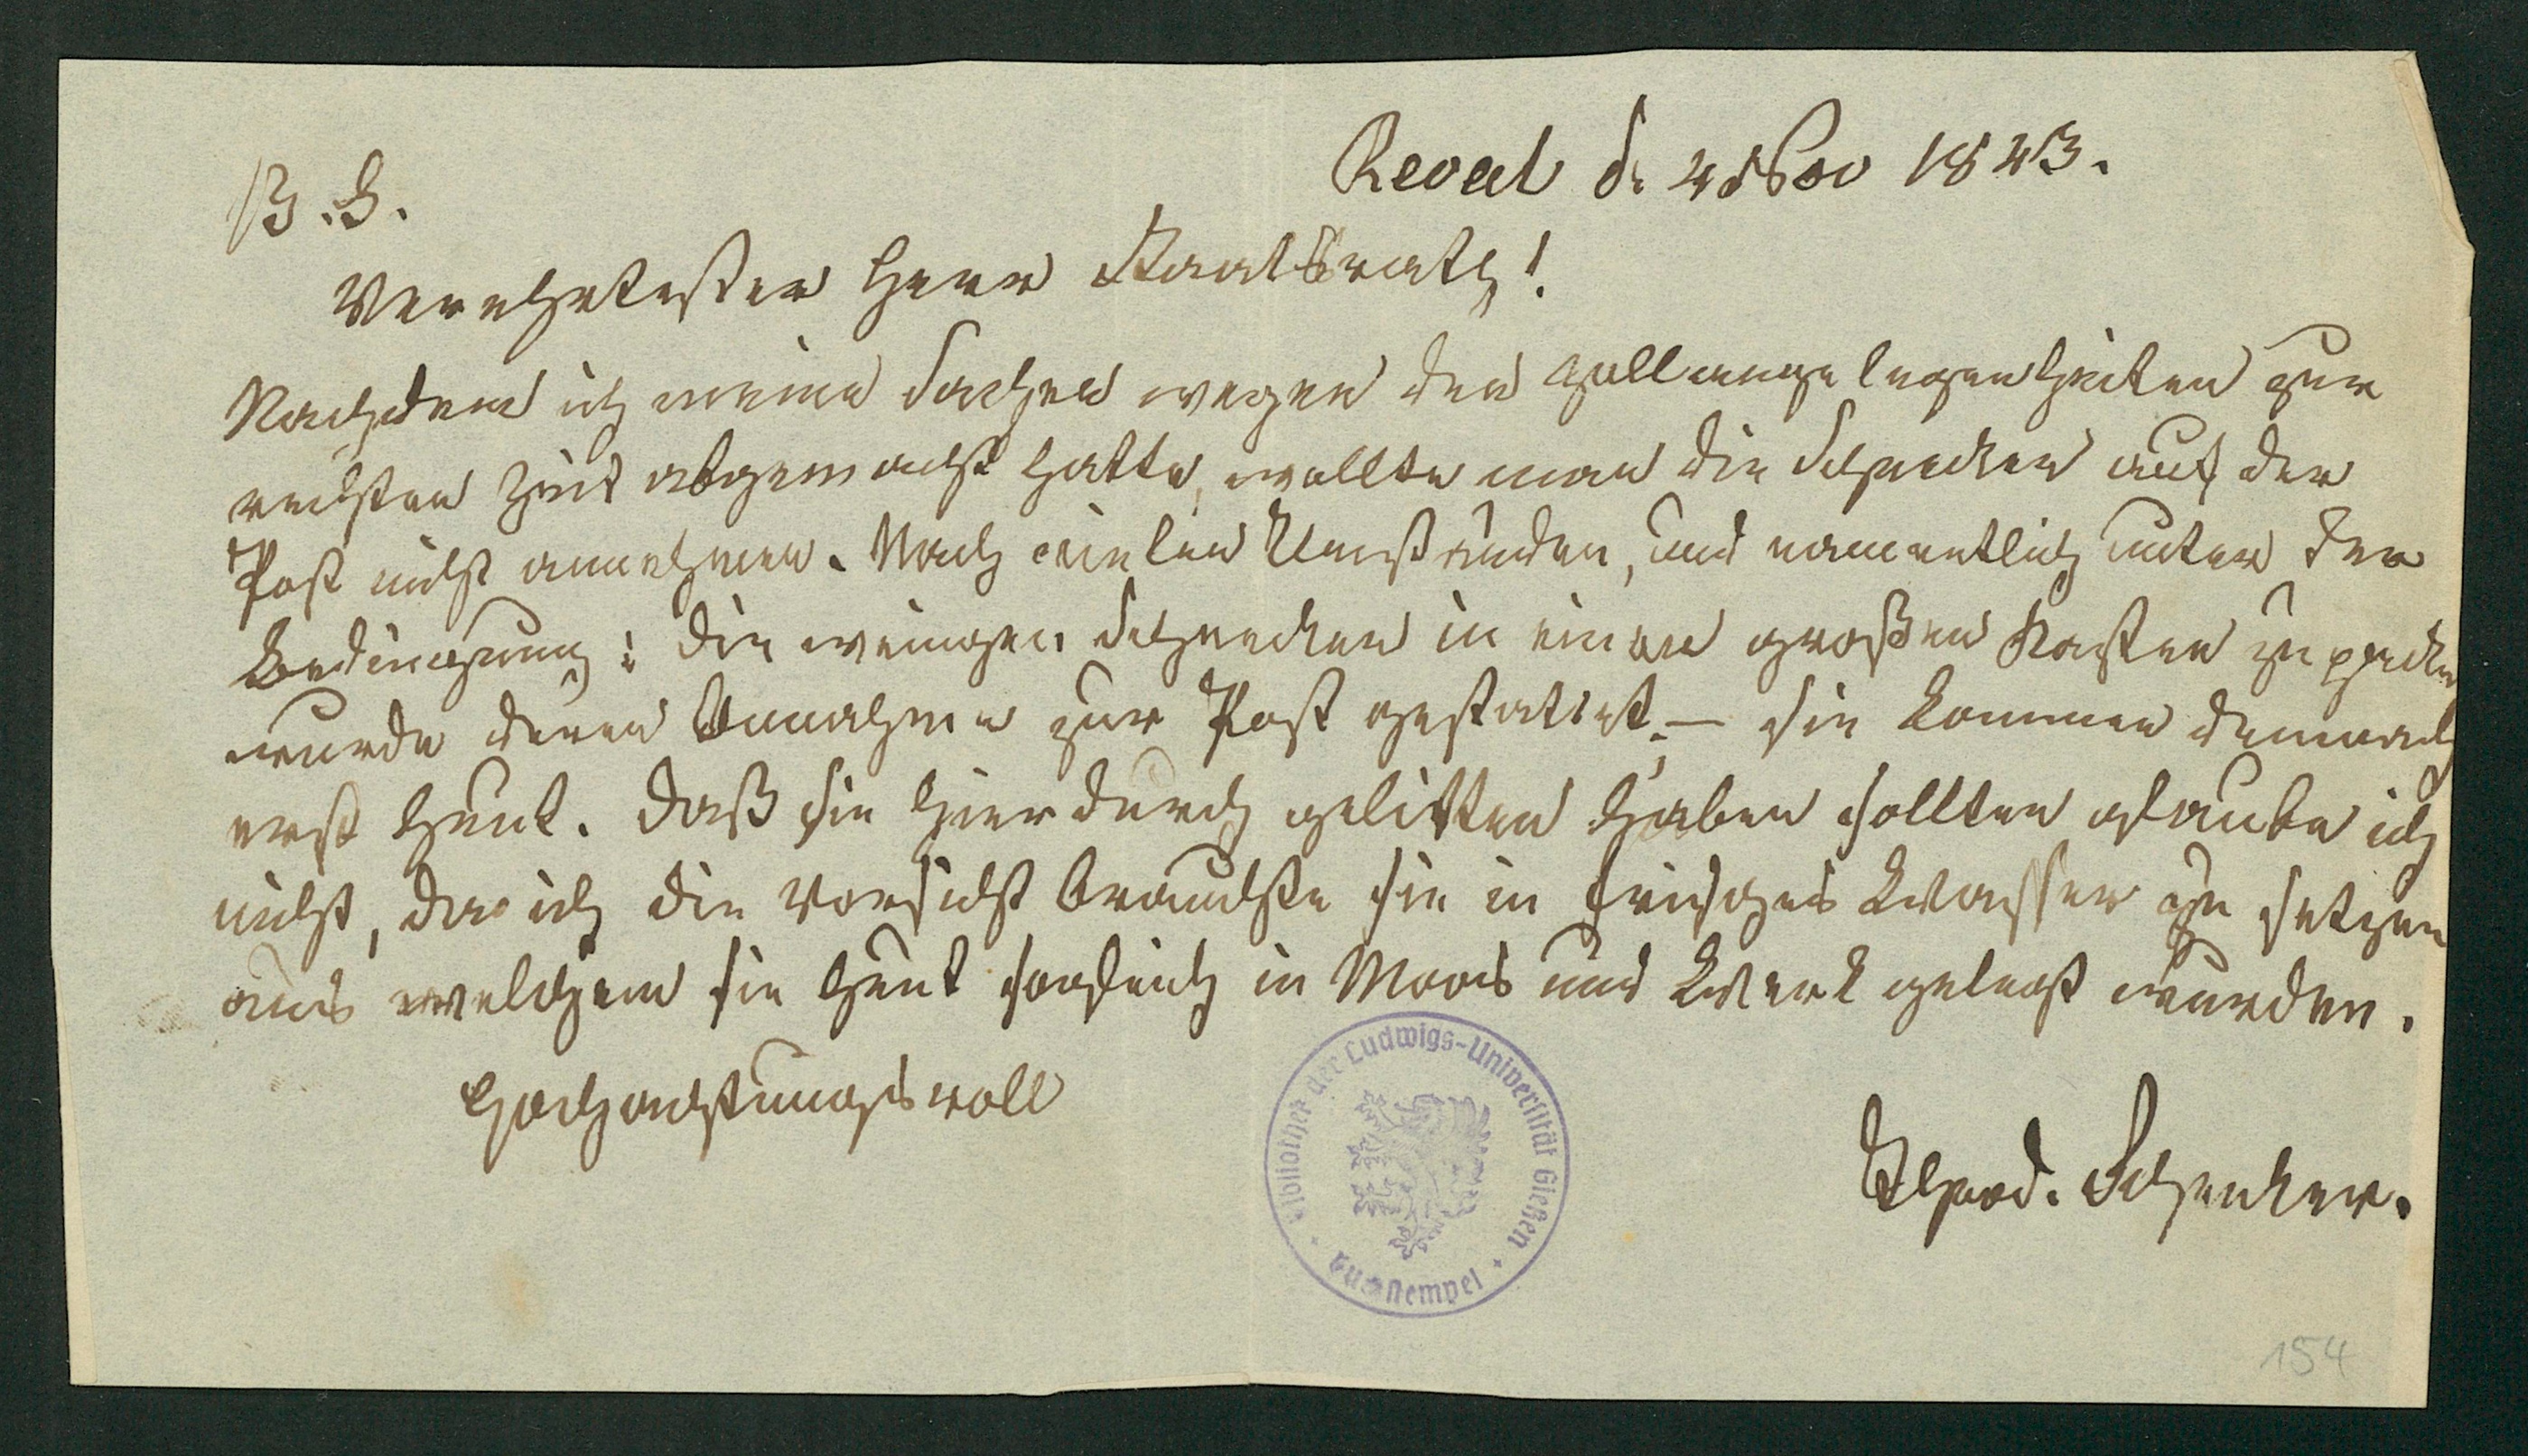 Reval d. 4 Nov 1843.
Verehrtester Herr Staatsrath!
Nachdem ich meine Sachen wegen den Zollangelegenheiten zur
rechten Zeit abgemacht hatte, wollte man die Schnecken auf der
Post nicht annehmen. Nach vielen Umständen, und namentlich unter der
Bedingung: die wenigen Schnecken in einen großen Kasten zu packen
wurde deren Annahme zur Post gestattet. – sie kommen demnach
erst heut. Daß sie hierdurch gelitten haben sollten glaube ich
nicht, da ich die Vorsicht brauchte sie in frisches Wasser zu setzen
aus welchem sie heut sogleich in Moos und Werk gelegt wurden.
Hochachtungsvoll
Schnecker.
Bibliothek der Ludwigs-Universität Gießen
stempel
154